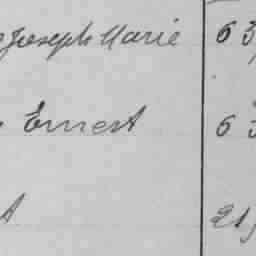 Joseph Marie 63
Ernest 63
t 21